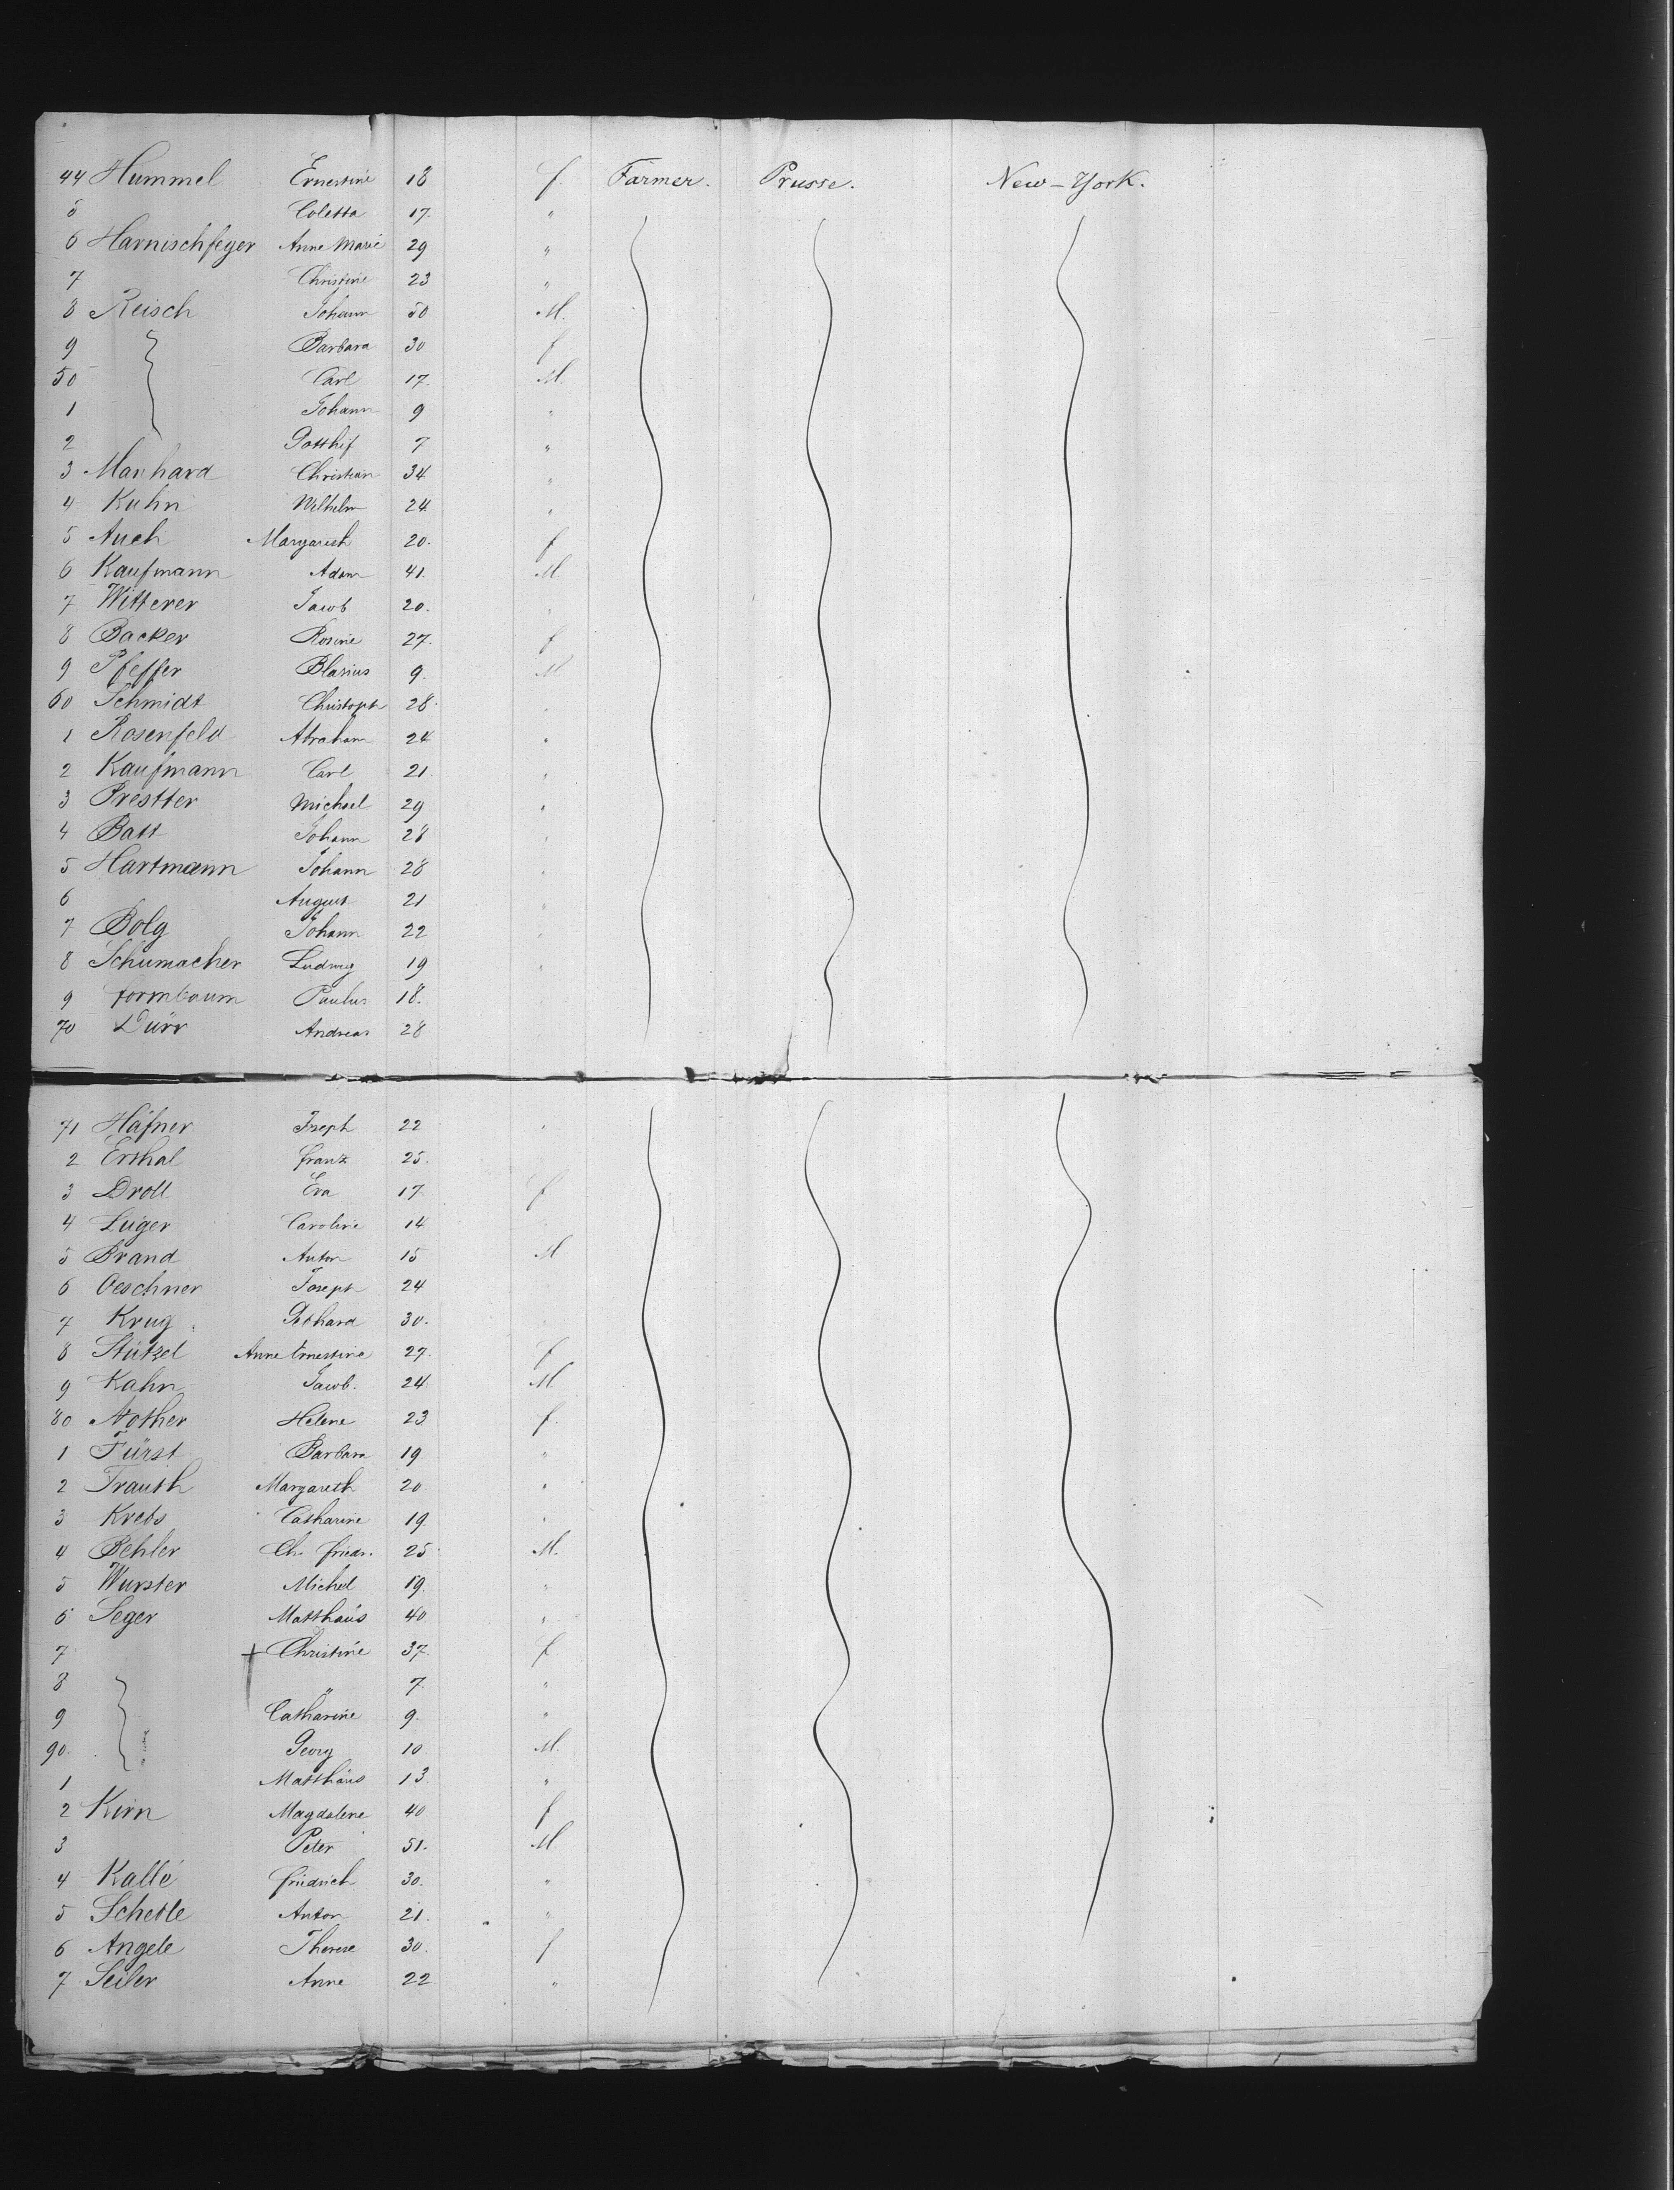 44 Hummel Ernestine 18 f. Farmer. Prusse. New-York.
5 Coletta 17. "
6 Harnischfeger Anne Marie 29 "
7 Christine 23 "
8 Reisch Johann 50 M.
9 Barbara 30 f
50 Carl 17. M.
1 Johann 9 "
2 Gotthif 7 "
3 Manhard Christian 34 "
4 Kuhn Wilhelm 24 "
5 Auch Margareth 20. f
6 Kaufmann Adam 41. M.
7 Witterer Jacob 20. "
8 Backer Rosine 27. f
9 Pfeffer Blasius 9. M
60 Schmidt Christoph 28. "
1 Rosenfeld Abraham 24 "
2 Kaufmann Carl 21. "
3 Prestter Michael 29 "
4 Batt Johann 28 "
5 Hartmann Johann 28 "
6 August 21 "
7 Bolg Johann 22 "
8 Schumacher Ludwig 19 "
9 Formbaum Paulus 18.
70 Dürr Andreas 28
71 Häfner Joseph 22 "
2 Erthal Franz 25.
3 Droll Eva 17. f
4 Luger Caroline 14 "
5 Brand Anton 15 M
6 Oeschner Joseph 24
7 Krug Gebhard 30.
8 Stützel Anne Ernestine 27. f
9 Kahn Jacob. 24 M
80 Nother Helene 23 f.
1 Fürst Barbara 19 "
2 Trauth Margareth 20 "
3 Krebs Catharine 19. "
4 Behler Ch. Friedr. 25 M.
5 Wurster Michel 19. "
6 Seger Matthäus 40 "
7 + Christine 37. f
8 " 7. "
9 Catharine 9. "
90. Georg 10 M.
1 Matthäus 13. "
2 Kirn Magdalene 40 f
3 Peter 51. M
4 Kallé Friedrich 30. "
5 Schetle Anton 21. "
6 Angele Therese 30. f
7 Seiler Anne 22 "